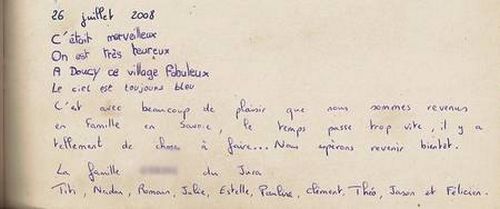 26 juillet 2008
C'était merveilleux
On est très heureux
A Doucy ce village Fabuleux
Le ciel est toujours bleu
C'est avec beaucoup de plaisir que nous sommes revenus
en famille en Savoie, le temps passe trop vite, il y a
tellement de choses à faire... Nous espérons revenir bientôt.
La famille du Jura
Titi, Neidan, Romain, Julie, Estelle, Pauline, Clément, Théo, Jason et Félicien.